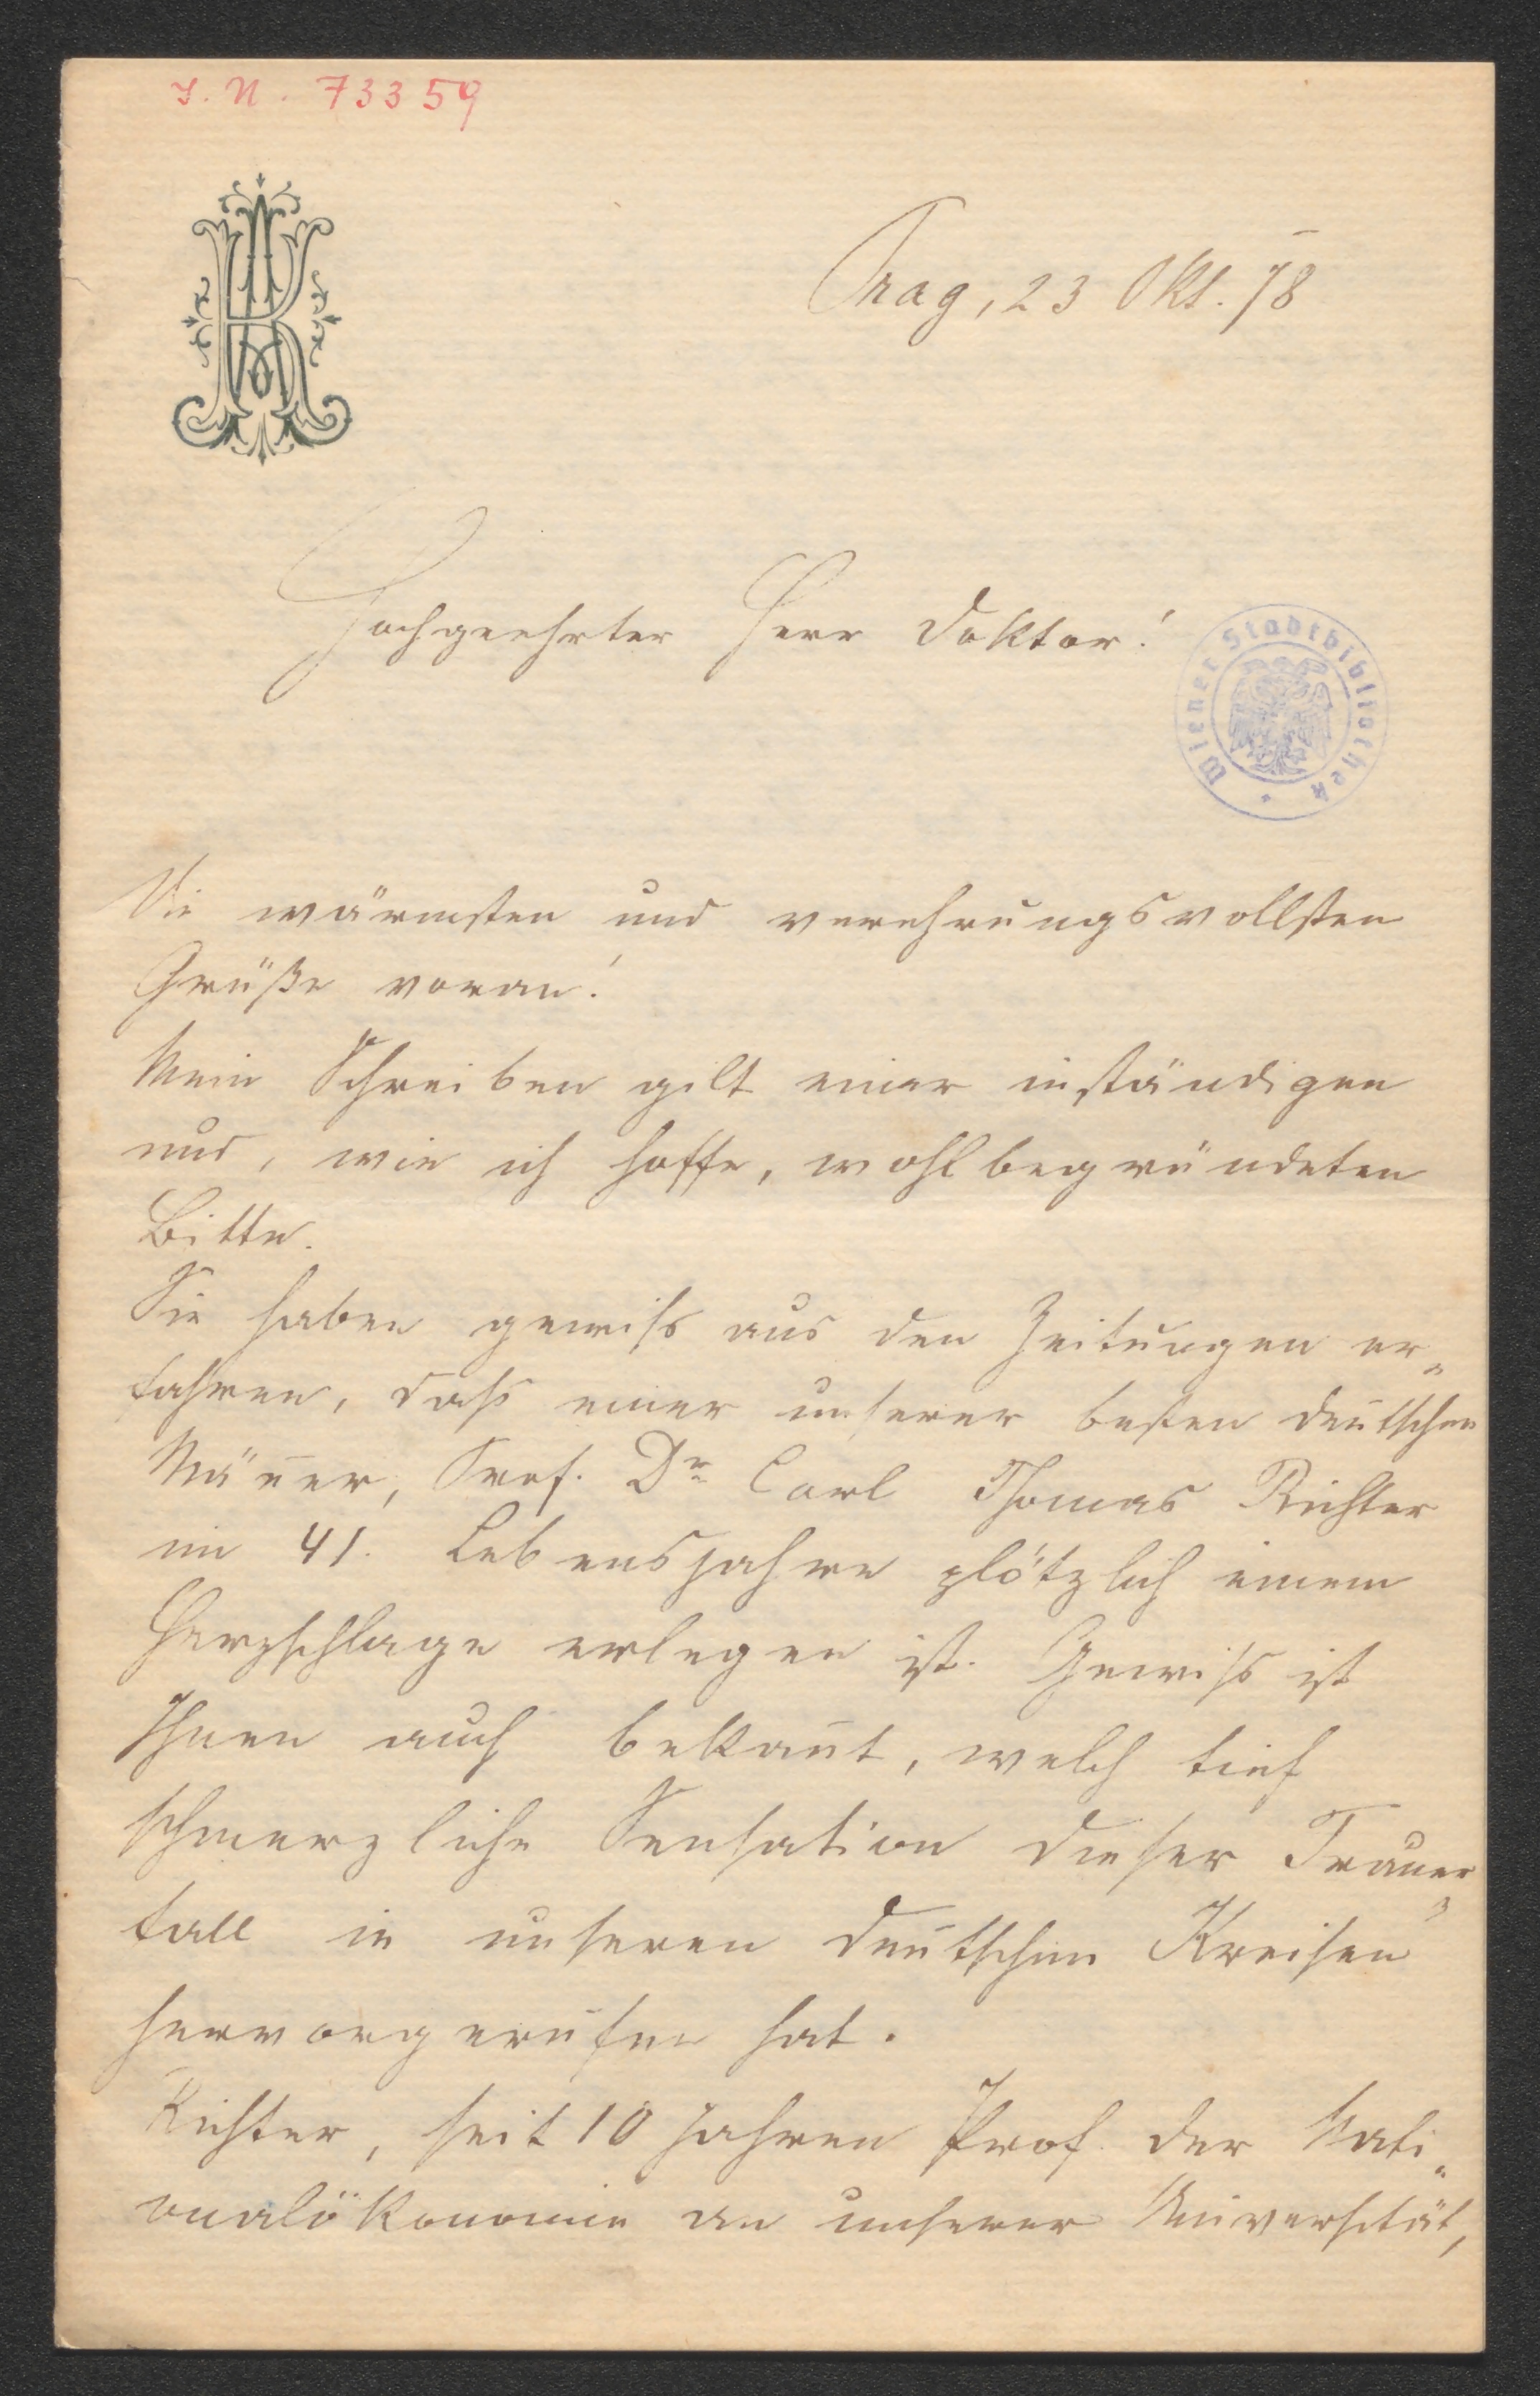 I. N. 73359
Prag, 23 Okt. 78
Hochgeehrter Herr Doktor!
Wiener Stadtbibliothek
Die wärmsten und verehrungsvollsten
Grüße voran!
Mein Schreiben gilt einer inständigen
und, wie ich hoffe, wohlbegründeten
Bitte.
Sie haben gewiss aus den Zeitungen er„
fahren, dass einer unserer besten deutschen
Män̅er, Prof. Dr Carl Thomas Richter
im 41. Lebensjahre plötzlich einem
Herzschlage erlegen ist. Gewiss ist
Ihnen auch bekan̅t, welch tief
schmerzliche Sensation dieser Trauer„
fall in unseren deutschen Kreisen
hervorgerufen hat.
Richter, seit 10 Jahren Prof. der Nati„
onalökonomie an unserer Universität,